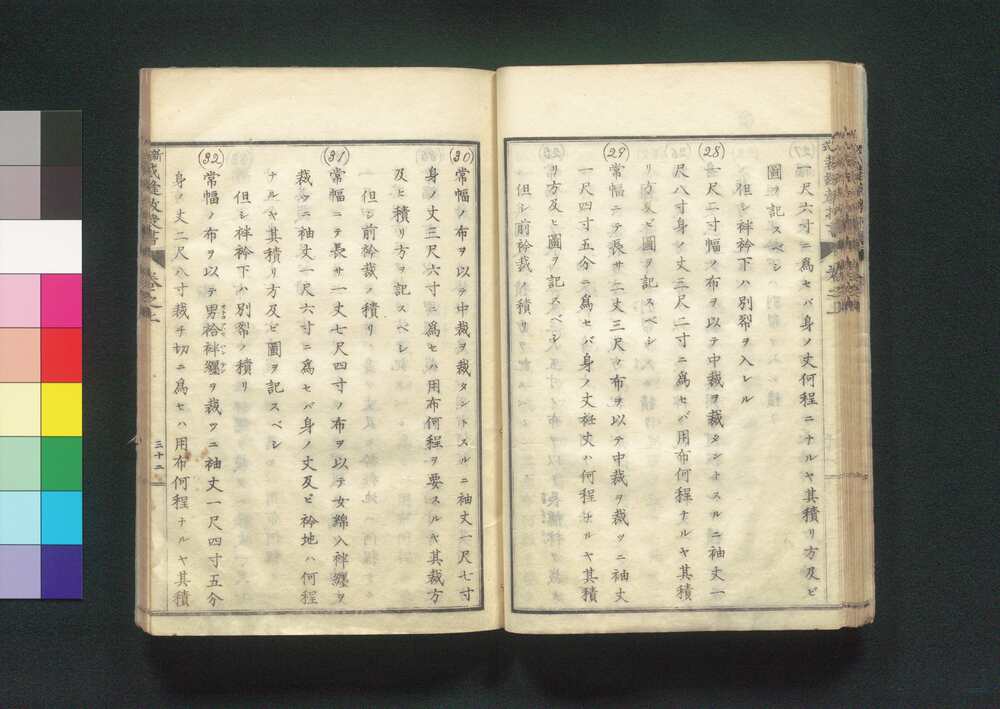 一尺六寸ニ爲セバ身ノ丈何程ニナルヤ其積リ方及ビ
圖ヲ記スベシ
但シ袢衿下ハ別帋ヲ入レル
(28)
一尺二寸幅ノ布ヲ以テ中裁ヲ裁タントスルニ袖丈一
尺八寸身ノ丈三尺二寸ニ爲セバ用布何程ナルヤ其積
リ方及ビ圖ヲ記スベシ
(29)
常幅ニテ長サ二丈三尺ノ布ヲ以テ中裁ヲ裁ツニ袖丈
一尺四寸五分ニ爲セバ身ノ丈衽丈ハ何程ナルヤ其積
リ方及ビ圖ヲ記スベシ
但シ前衿裁ノ積リ
(30)
常幅ノ布ヲ以テ中裁ヲ裁タントスルニ袖丈一尺七寸
身ノ丈三尺六寸ニ爲セハ用布何程ヲ要スルヤ其裁方
及ヒ積リ方ヲ記スベシ
但シ前衿裁ノ積リ
(31)
常幅ニテ長サ一丈七尺四寸ノ布ヲ以テ女綿入袢纒ヲ
裁ツニ袖丈一尺六寸ニ爲セバ身ノ丈及ビ衿地ハ何程
ナルヤ其積リ方及ビ圖ヲ記スベシ
但シ袢衿下ハ別帋ノ積リ
(32)
常幅ノ布ヲ以テ男袷袢纒ヲ裁ツニ袖丈一尺四寸五分
身ノ丈二尺八寸裁チ切ニ爲セハ用布何程ナルヤ其積
三十二